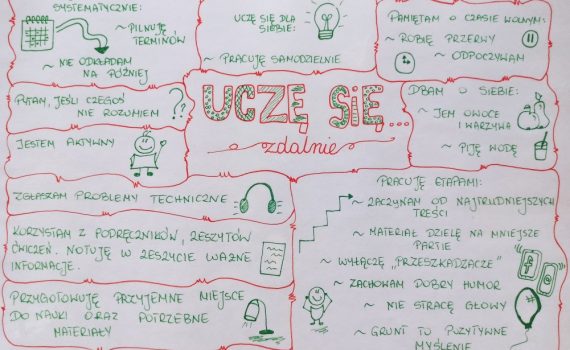 SYSTEMATYCZNIE:
~ PILNUJĘ
TERMINÓW
~ NIE ODKŁADAM
NA PÓŹNIEJ
UCZĘ SIĘ DLA
SIEBIE:
~ PRACUJĘ SAMODZIELNIE
PAMIĘTAM O CZASIE WOLNYM:
~ ROBIĘ PRZERWY
~ ODPOCZYWAM
PYTAM, JEŚLI CZEGOŚ
NIE ROZUMIEM
??
JESTEM AKTYWNY
UCZĘ SIĘ...
zdalnie
DBAM O SIEBIE:
~ JEM OWOCE
I WARZYWA
~ PIJĘ WODĘ
ZGŁASZAM PROBLEMY TECHNICZNE
KORZYSTAM Z PODRĘCZNIKÓW, ZESZYTÓW
ĆWICZEŃ. NOTUJĘ W ZESZYCIE WAŻNE
INFORMACJE.
PRZYGOTOWUJĘ PRZYJEMNE MIEJSCE
DO NAUKI ORAZ POTRZEBNE
MATERIAŁY
PRACUJĘ ETAPAMI:
~ ZACZYNAM OD NAJTRUDNIEJSZYCH
TREŚCI
~ MATERIAŁ DZIELĘ NA MNIEJSZE
PARTIE
~ WYŁĄCZĘ „PRZESZKADZACZE"
~ ZACHOWAM DOBRY HUMOR
~ NIE STRACĘ GŁOWY
~ GRUNT TO POZYTYWNE
MYŚLENIE